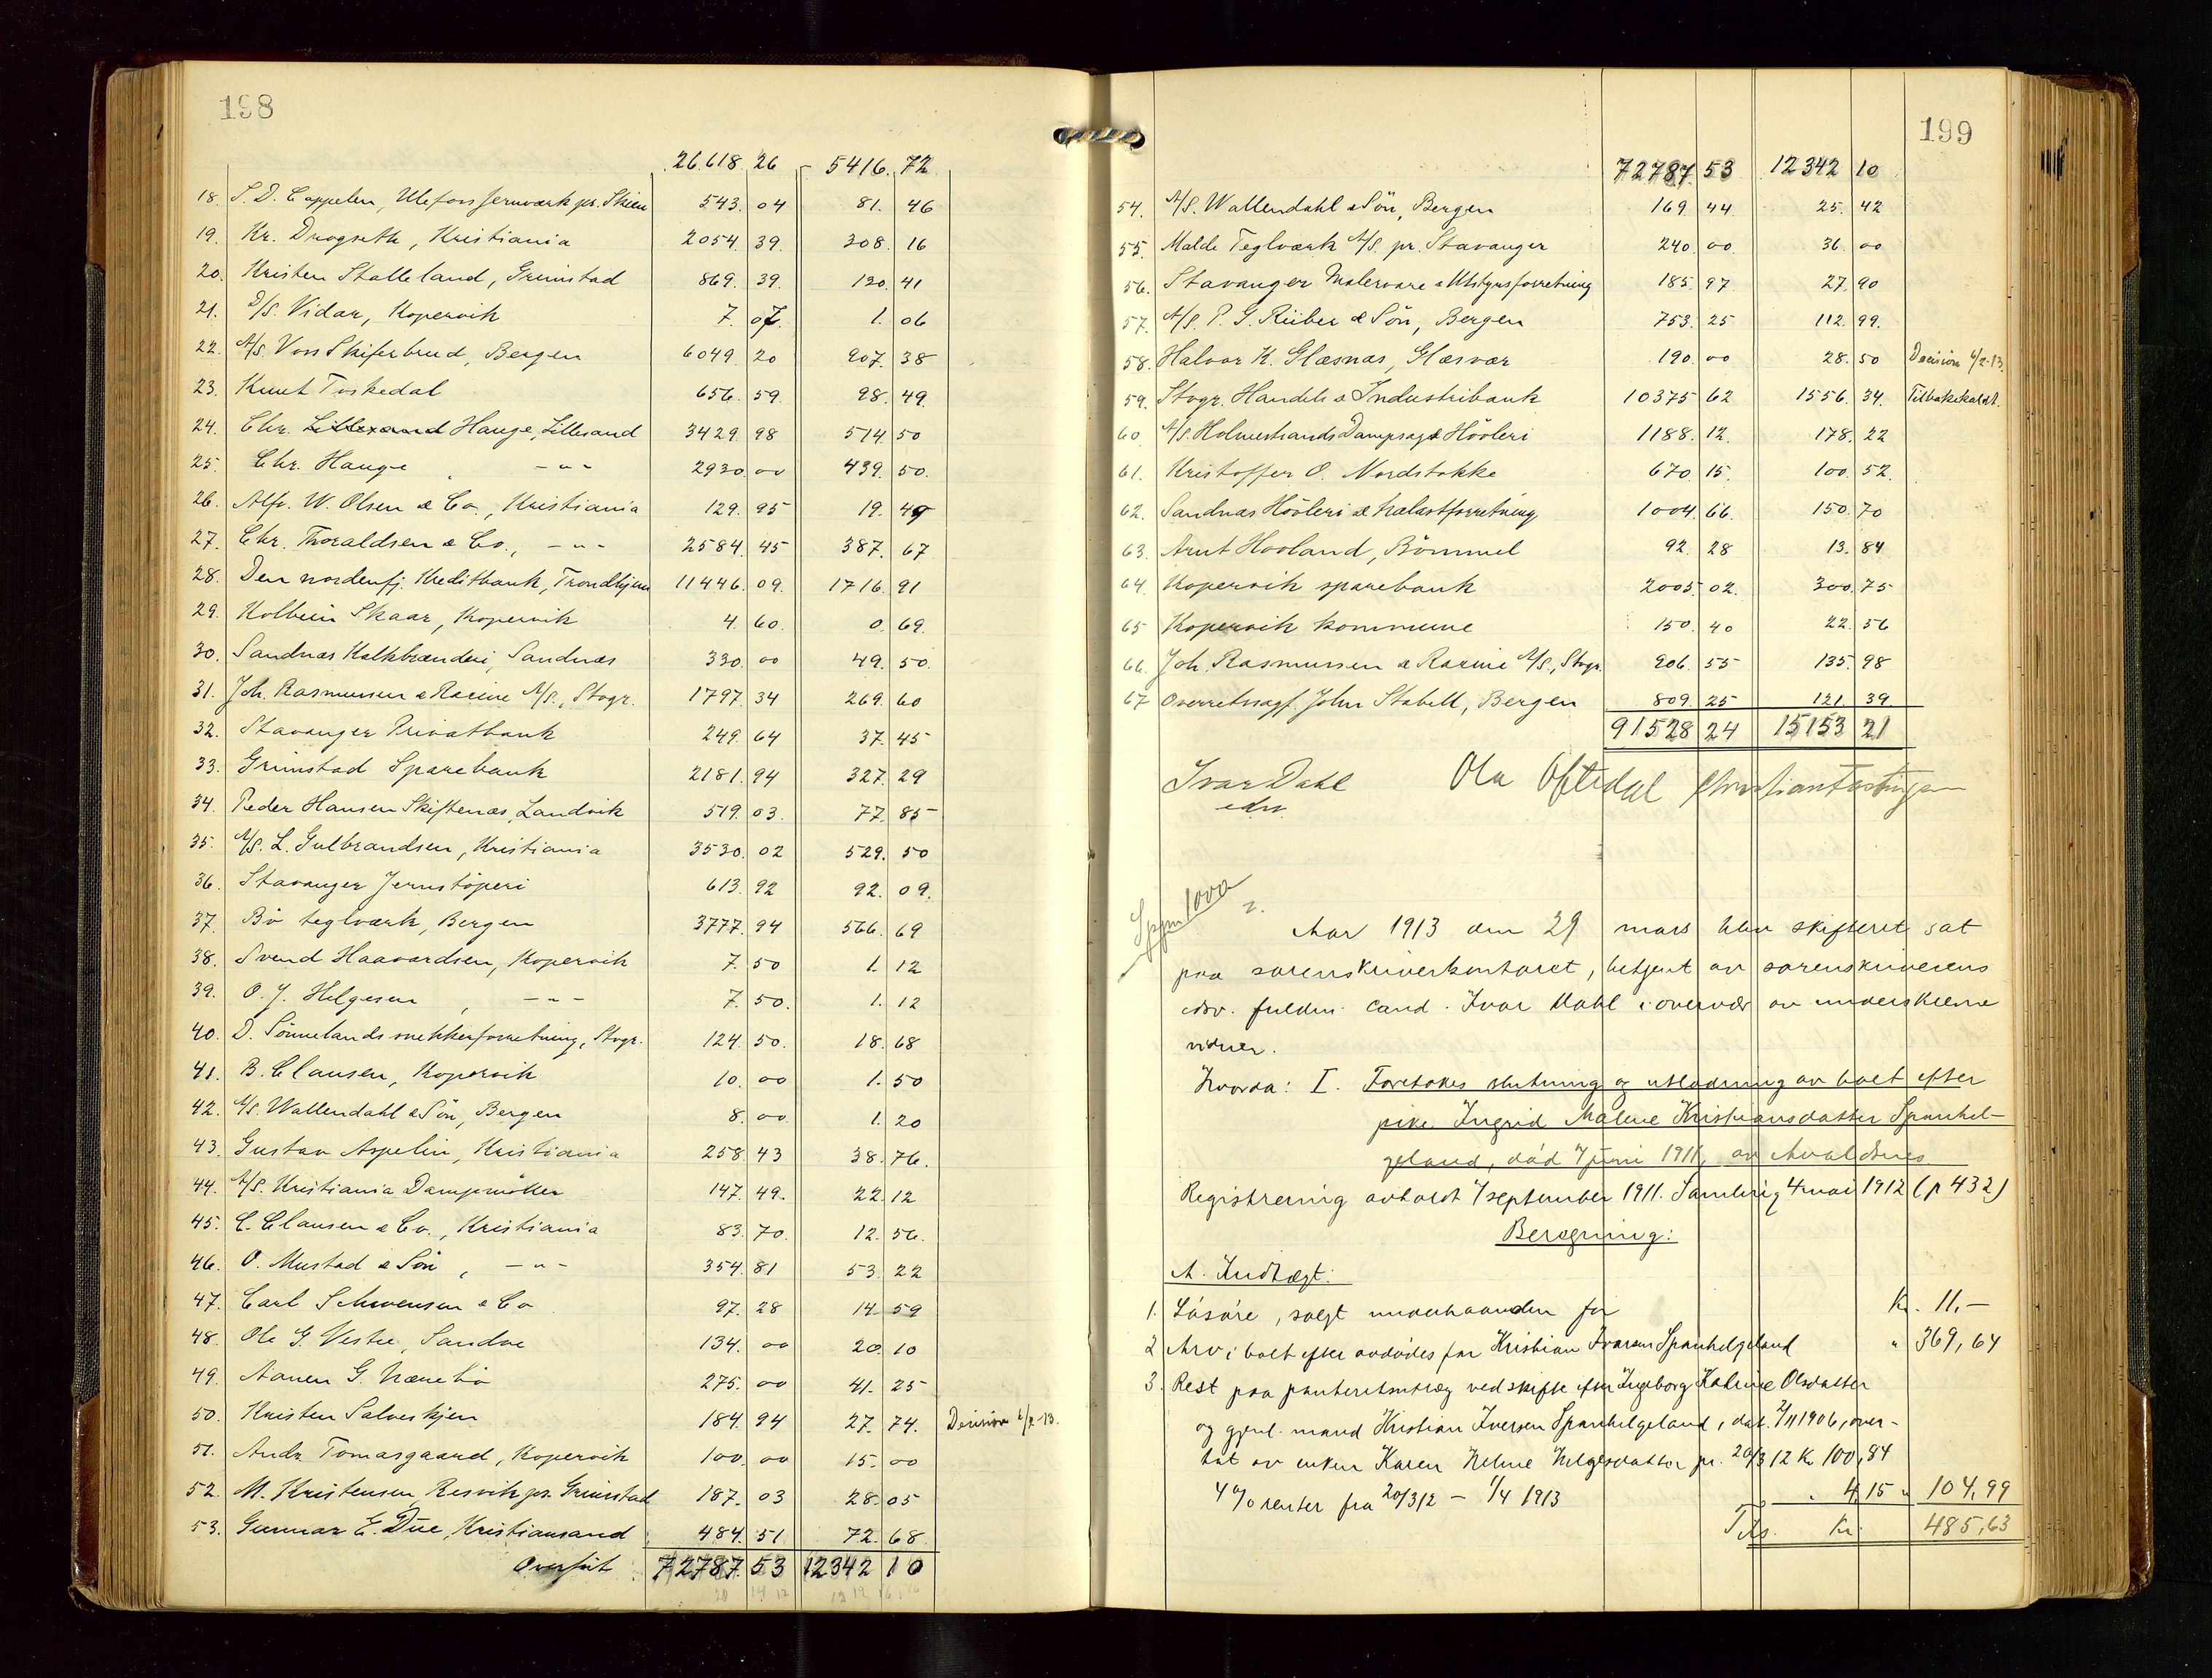 198
26618. 26 5416. 72
18. S. D. Cappelen, Ulefoss Jernværk pr. Skien 543. 04 81. 46
19. Kr. Drogseth, Kristiania 2054. 39. 308. 16
20. Kristen Stalleland, Grimstad 869. 39. 130. 41
21. D/S. Vidar, Kopervik 7. 07. 1. 06
22. A/S. Voss Skiferbrud, Bergen 6049. 20 907. 38
23. Knut Toskedal 656. 59. 98. 49.
24. Chr. Lillesand Hauge, Lillesand 3429. 98 514. 50
25. Chr. Hauge, -"- 2930. 00 439. 50.
26. Alfr. W. Olsen & Co., Kristiania 129. 95 19. 49
27. Chr. Thoraldsen & Co., -"- 2584. 45 387. 67
28. Den nordenfj. Kreditbank, Trondhjem 11446. 09. 1716. 91
29. Kolbein Skaar, Kopervik 4. 60. 0. 69.
30. Sandnæs Kalkbrænderi, Sandnæs 330. 00 49. 50.
31. Joh. Rasmussen & Racine A/S., Stvgr. 1797. 34 269. 60
32. Stavanger Privatbank 249. 64 37. 45
33. Grimstad Sparebank 2181. 94 327. 29
34. Peder Hansen Skiftenæs, Landvik 519. 03. 77. 85
35. A/S. L. Gulbrandsen, Kristiania 3530. 02 529. 50
36. Stavanger Jernstøperi 613. 92 92. 09.
37. Bø teglværk, Bergen 3777. 94 566. 69
38. Svend Haavardsen, Kopervik 7. 50 1. 12
39. O. J. Helgesen, -"- 7. 50. 1. 12
40. D. Sønnelands snekkerforretning, Stvgr. 124. 50. 18. 68
41. B. Clausen, Kopervik 10. 00 1. 50
42. A/S. Wallendahl & Søn, Bergen 8. 00. 1. 20
43. Gustav Aspelin, Kristiania 258. 43 38. 76.
44. A/S. Kristiania Dampmøller 147. 49. 22. 12
45. C. Clausen & Co., Kristiania 83. 70. 12. 56.
46. O. Mustad & Søn, -"- 354. 81 53. 22
47. Carl Schwensen & Co 97. 28 14. 59
48. Ole G. Vestre, Sandve 134. 00 20. 10
49. Aanen G. 275. 00 41. 25
50. Kristen Salveskjen 184. 94 27. 74. Decision 6/2-13.
51. Andr. Tomasgaard, Kopervik 100. 00 15. 00
52. M. Kristensen, Resvik pr. Grimstad 187. 03 28. 05
53. Gunnar E. Due, Kristiansand 484. 51 72. 68
Overført 72787. 53 12342 10
199
72787. 53 12342 10
54. A/S. Wallendahl & Søn, Bergen 169. 44. 25. 42
55. Malde Teglværk A/S. pr. Stavanger 240. 00 36. 00
56. Stavanger Malervare & Utstyrsforretning 185. 97 27. 90
57. A/S. P. G. Rieber & Søn, Bergen 753. 25 112. 99.
58. Halvor K. Glæsnæs, Glæsvær 190. 00 28. 50 Decision 6/2-13.
59. Stvgr. Handels & Industribank 10375 62 1556. 34. Tilbakekaldt.
60. A/S. Holmestrands Dampsag & Høvleri 1188. 12. 178. 22
61. Kristoffer O. Nordstokke 670. 15. 100. 52.
62. Sandnæs Høvleri & Trælastforretning 1004. 66. 150. 70
63. Arnt Hovland, Bømmel 92. 28 13. 84
64. Kopervik sparebank 2005. 02. 300. 75
65 Kopervik kommune 150. 40 22. 56
66. Joh. Rasmussen & Racine A/S., Stvgr. 906. 55 135. 98
67 Overretssagf. John Stabell, Bergen 809. 25 121. 39.
91528 24 15153 21
Ivar Dahl Ola Oftedal Christian Fastingsen
edv.
Aar 1913 den 29 mars blev skifteret sat
paa sorenskriverkontoret, betjent av sorenskriverens
edsv. fuldm. cand. Ivar Dahl i overvær av underskrevne
vidner.
Hvorda: I. Foretokes slutning og utlodning av boet efter
pike Ingrid Malene Kristiansdatter Spanhel-
geland, død 7 juni 1911, av Avaldsnes
Registrering avholdt 7 september 1911. Samling 4 mai 1912 (p 432)
Beregning:
A. Indtægt:
1. Løsøre, solgt underhaanden for Kr. 11,-
2 Arv i boet efter avdødes far Kristian Ivarsen Spanhelgeland " 369,64
3. Rest paa panteretsutlæg ved skifte efter Ingeborg Katrine Olsdatter
og gjenl. mand Kristian Iversen Spanhelgeland, dat. 2/11 1906, over-
tat av enken Karen Helene Helgesdatter pr. 20/3 12 Kr. 100,84
4 % renter fra 20/3 12 - 1/4 1913 " 4,15 " 104,99
Tils. Kr. 485,63